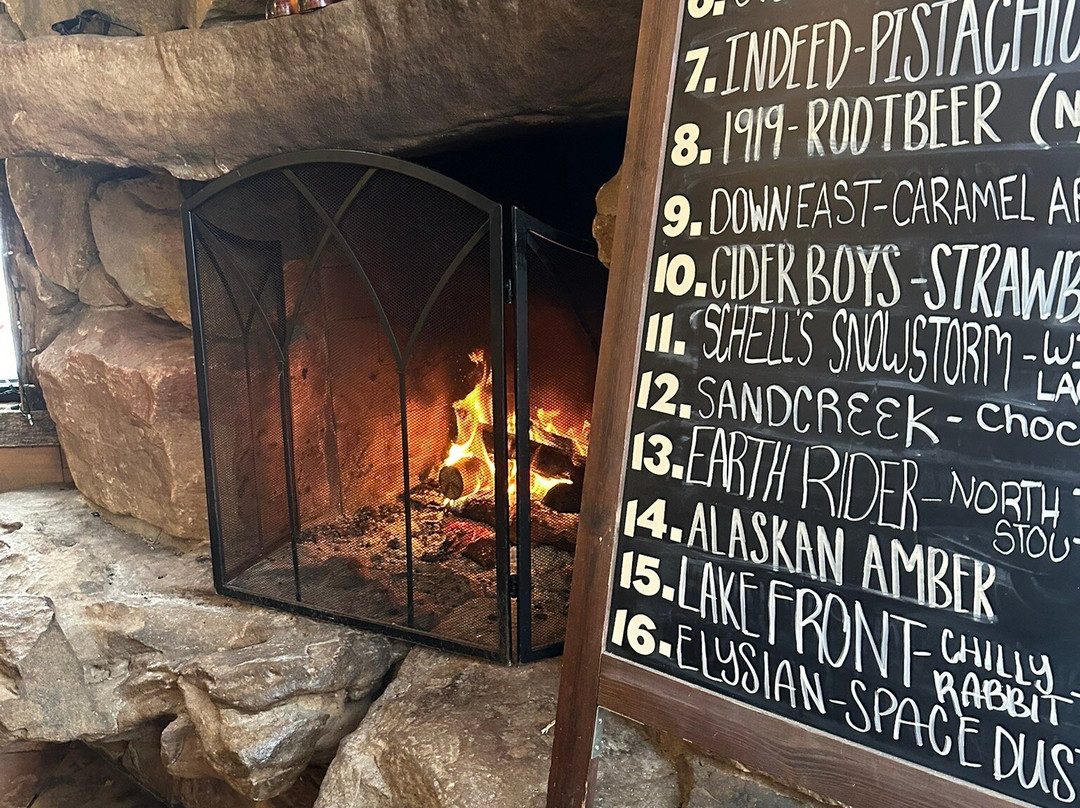 7. INDEED-PISTACHIO
8. 1919-ROOTBEER (N
9. DOWNEAST-CARAMEL AP
10. CIDERBOYS-STRAWB
11. SCHELL'S SNOWSTORM-WI
LA
12. SANDCREEK-CHOC
13. EARTH RIDER-NORTH
STOU
14. ALASKAN AMBER
15. LAKE FRONT-CHILLY
RABBIT
16. ELYSIAN-SPACE DUS